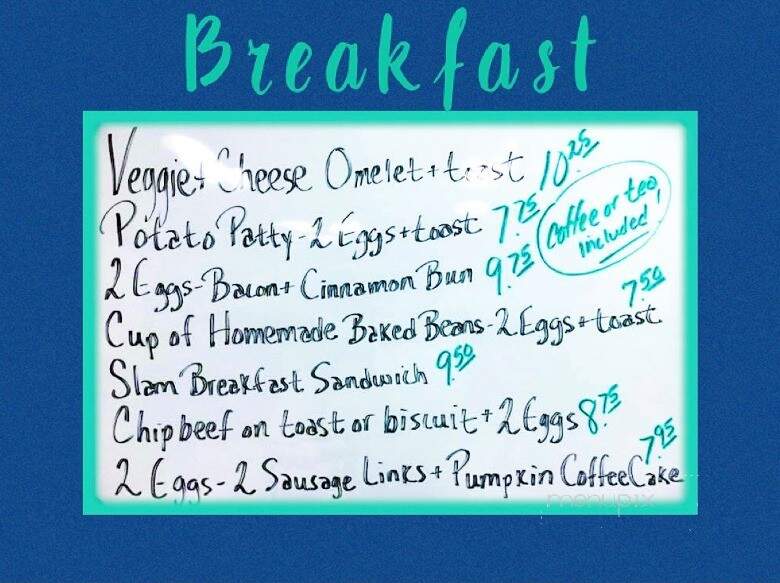 Breakfast
Veggie + Cheese Omelet + toast 10.25
Potato Patty - 2 Eggs + toast 7.75
Coffee or tea, included!
2 Eggs - Bacon + Cinnamon Bun 9.75
Cup of Homemade Baked Beans - 2 Eggs + toast 7.50
Slam Breakfast Sandwich 9.50
Chip beef on toast or biscuit + 2 Eggs 8.75
2 Eggs - 2 Sausage Links + Pumpkin Coffee Cake 7.95
menupix